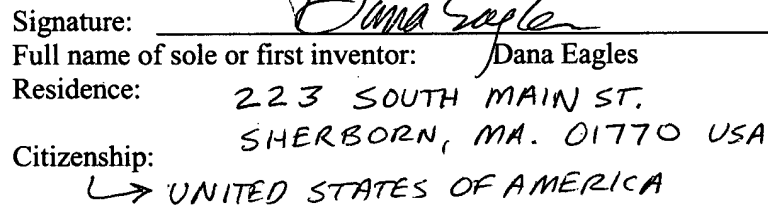 Signature: Dana Eagles
Full name of sole or first inventor: Dana Eagles
Residence: 223 SOUTH MAIN ST.
SHERBORN, MA. 01770 USA
Citizenship:
↳ UNITED STATES OF AMERICA